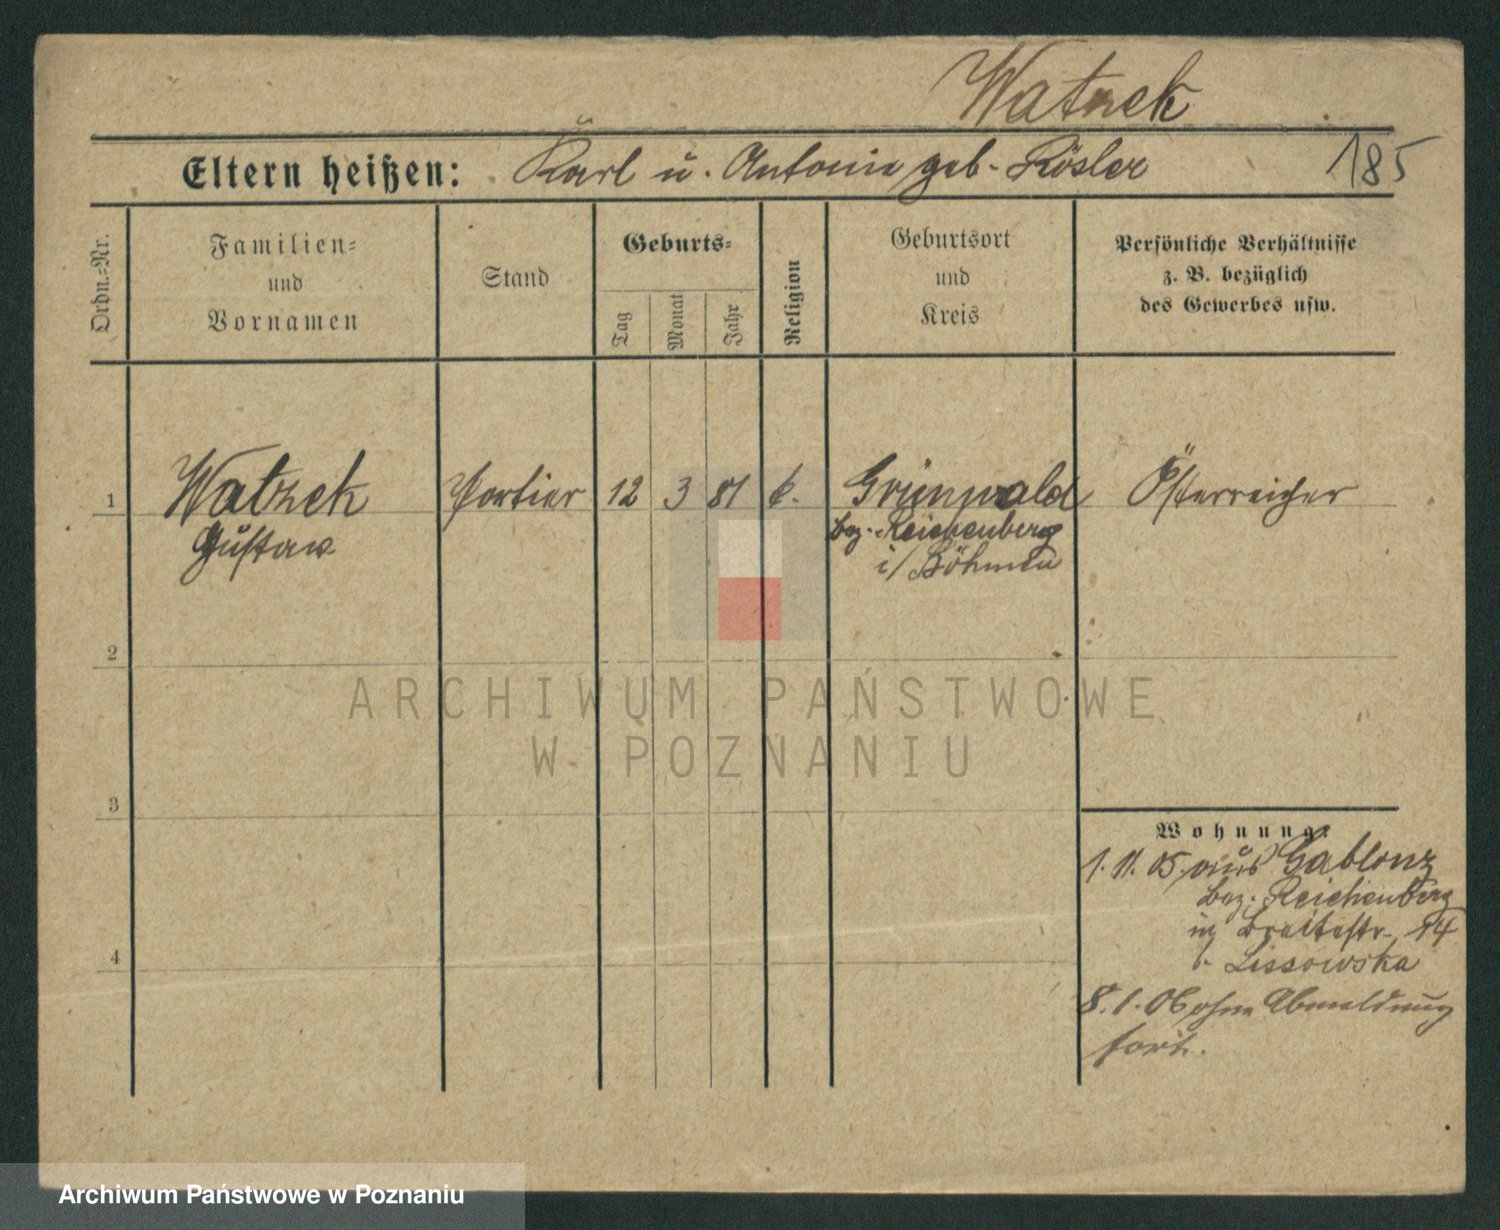 Watzek
Eltern heißen: Karl u. Antonie geb. Rösler
185
Ordn.-Nr.
Familien-
und
Vornamen
Stand
Geburts-
Tag
Monat
Jahr
Religion
Geburtsort
und
Kreis
Persönliche Verhältnisse
z. B. bezüglich
des Gewerbes usw.
1 Watzek Portier 12 3 81 k. Grünwald Österreicher
Gustav
Bez. Reichenberg
i/Böhmen
2
ARCHIWUM PAŃSTWOWE
W POZNANIU
3
4
Wohnung.
1. 11. 05. aus Gablonz
Bez. Reichenberg
Breitestr. 14
b. Lissowska
8. 1. 06 ohne Abmeldung
fort.
Archiwum Państwowe w Poznaniu